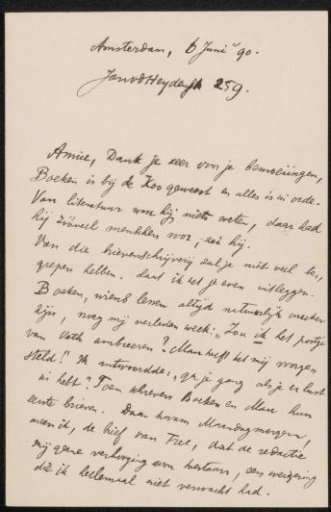 Amsterdam, 6 Juni '90.
259.
Amice, Dank je zeer voor je bemoeiingen,
Boeken is bij de Koo geweest en alles is in orde.
Van literatuur wou hij niets weten, daar had
hij zóóveel menschen voor, zei hij.
Van die brievenschrijverij zal je niet veel be-
grepen hebben. Laat ik het je even uitleggen.
Boeken, wiens lessen altijd natuurlijk
zijn, vroeg mij verleden week: "Zou ik het
van Loth ambieeren? Mau heeft het mij voorge-
steld!" Ik antwoordde: "ga je gang als je er lust
in hebt." Toen schreven Boeken en Mau hun
eerste brieven. Daar kwam Maandagmorgen,
meen ik, de brief van Tree, dat de redactie
mij geene verhooging kon toestaan, een weigering
die ik heelemaal niet verwacht had.